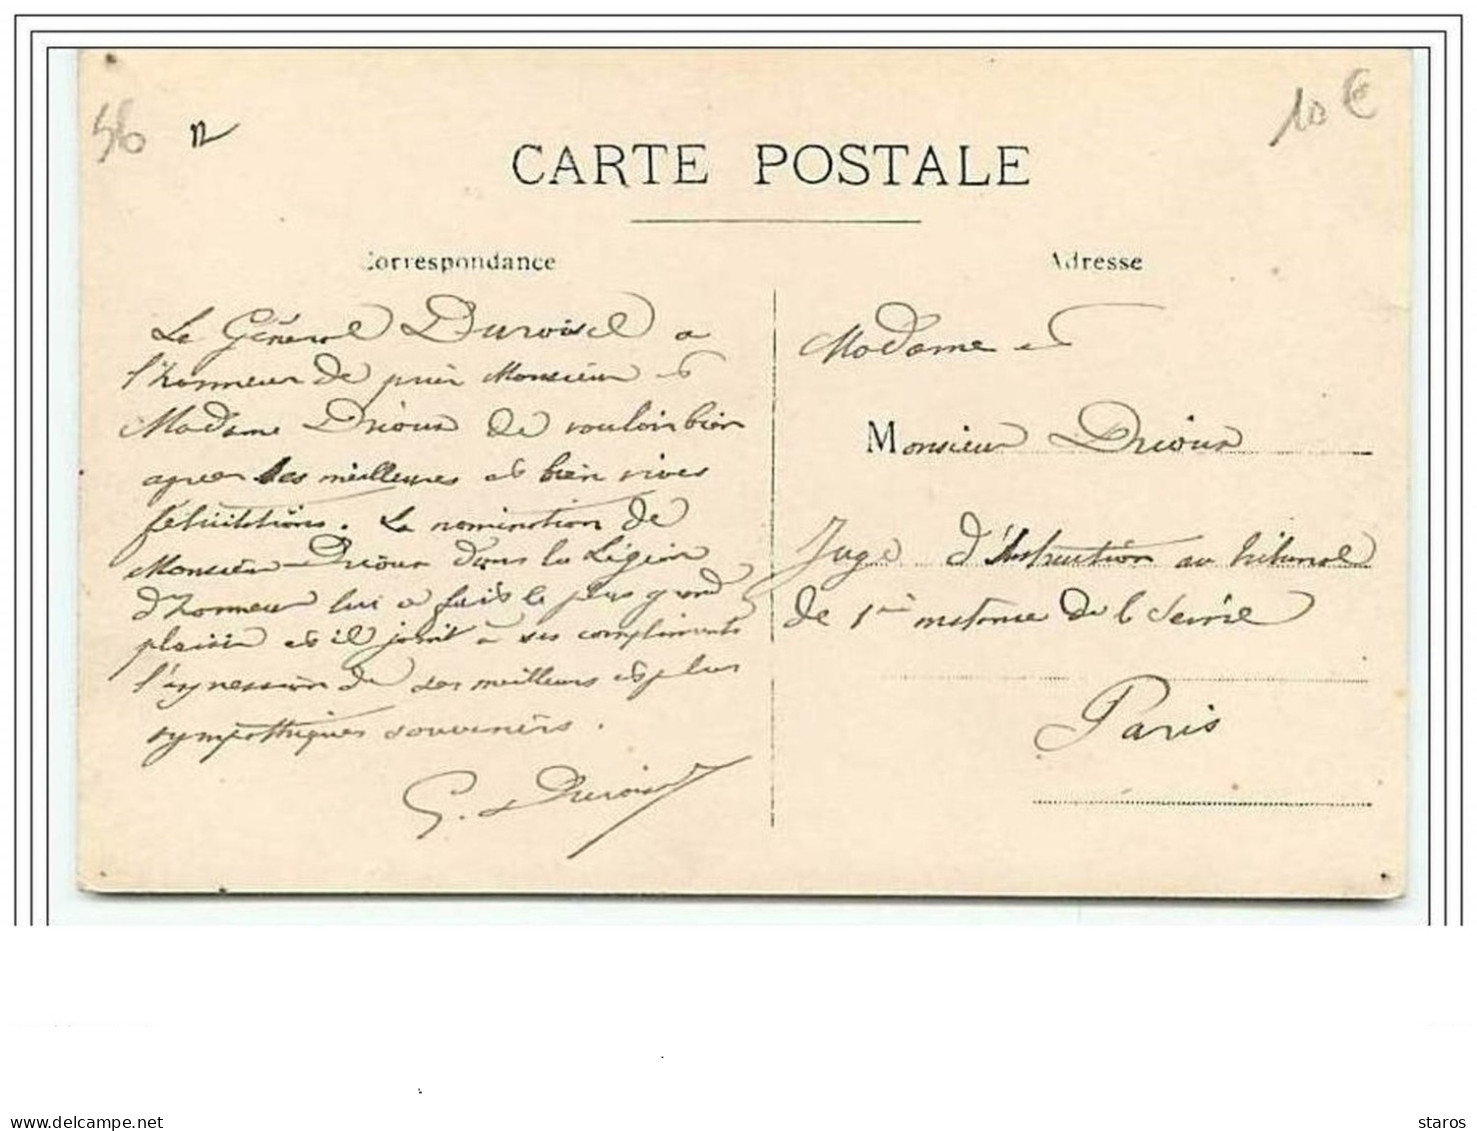 56
10 €
CARTE POSTALE
Correspondance
Adresse
Le Général Duroisel a
l'honneur de prier Monsieur et
Madame Drioux de vouloir bien
agréer ses meilleures et bien vives
félicitations. La nomination de
Monsieur Drioux dans la Légion
d'honneur lui a fait le plus grand
plaisir et il joint à ses compliments
l'expression de ses meilleurs et plus
sympathiques souvenirs.
G. Duroisel
Madame et
Monsieur Drioux
Juge d'Instruction au tribunal
de 1ère instance de la Seine
Paris
delcampe.net
staros